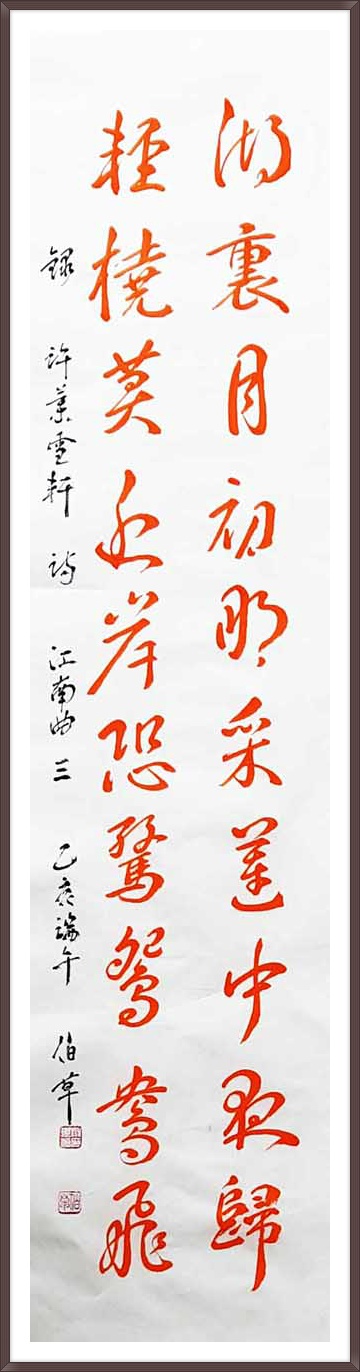 湖裏月初明采蓮中夜歸
輕橈莫近岸恐驚鴛鴦飛
錄 許蘭雪軒 詩 江南曲 三 己亥端午 伯草